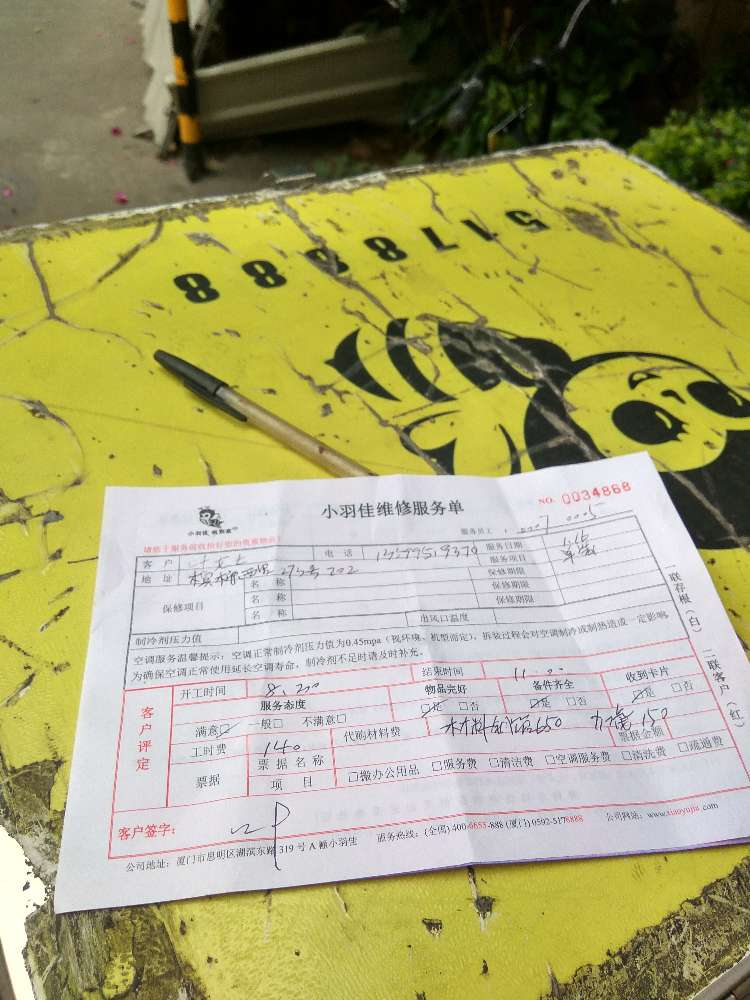 5178888
小羽佳维修服务单
NO. 0034868
小羽佳
服务员工：0007 0005
请您于服务前收拾好您的贵重物品!
客户 电话 服务日期
地址 273号202 服务项目
保修项目 名称 保修期限
名称 保修期限
名称 保修期限
制冷剂压力值 出风口温度
空调服务温馨提示：空调正常制冷剂压力值为0.45mpa（视环境、机型而定），拆装过程会对空调制冷或制热造成一定影响，
为确保空调正常使用延长空调寿命，制冷剂不足时请及时补充。
一联存根（白） 二联客户（红）
客户评定
开工时间 结束时间 11:00
服务态度 物品完好 备件齐全 收到卡片
满意☑ 一般□ 不满意□ ☑是 □否 ☑是 □否 ☑是 □否
工时费 140 代购材料费 材料 650 150
票据 票据名称 票据金额
项目 □搬办公用品 □服务费 □清洁费 □空调服务费 □清洗费 □疏通费
客户签字：
公司地址：厦门市思明区湖滨东路319号A幢小羽佳 服务热线：(全国)400-6653-888 (厦门)0592-5178888 公司网站：www.xiaoyujia.com